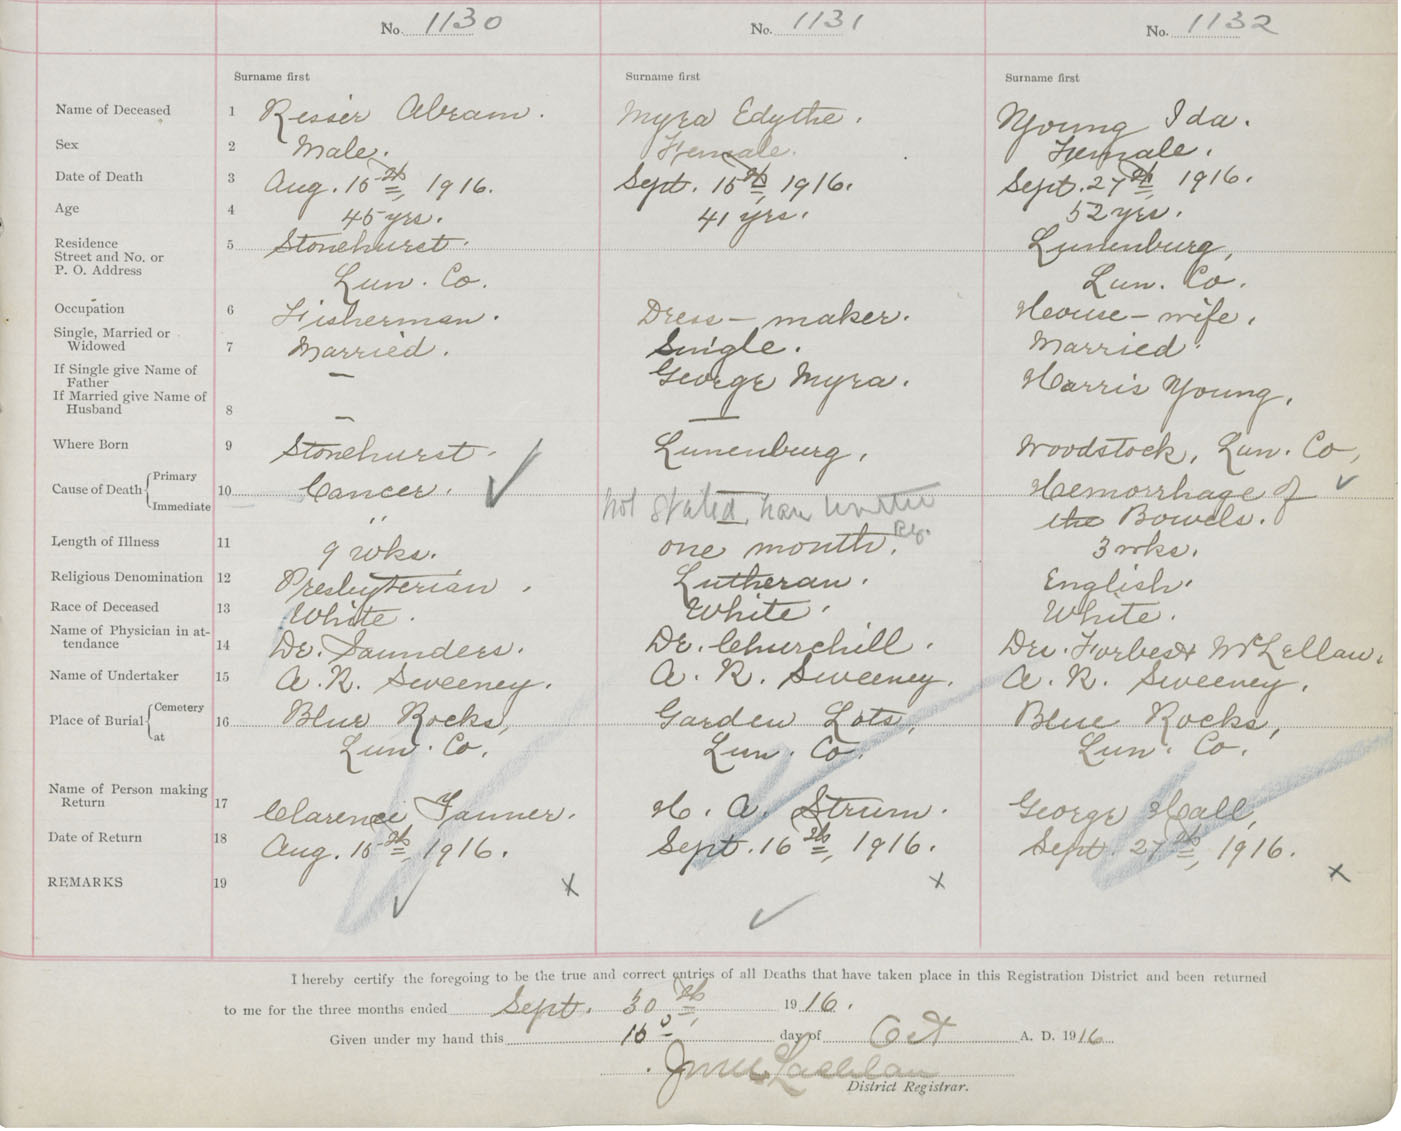 No. 1130 No. 1131 No. 1132
Surname first Surname first Surname first
Name of Deceased 1 Risser Abram. Myra Edythe. Young Ida.
Sex 2 Male. Female. Female.
Date of Death 3 Aug. 15th, 1916. Sept. 15th, 1916. Sept. 27th, 1916.
Age 4 45 yrs. 41 yrs. 52 yrs.
Residence 5 Stonehurst. Lunenburg,
Street and No. or
P. O. Address Lun. Co. Lun. Co.
Occupation 6 Fisherman. Dress-maker. House-wife.
Single, Married or
Widowed 7 Married. Single. Married.
If Single give Name of
Father — George Myra. Harris Young.
If Married give Name of
Husband 8 — —
Where Born 9 Stonehurst. Lunenburg. Woodstock, Lun. Co,
Cause of Death { Primary 10 Cancer. Not stated, have written Hemorrhage of
Immediate " — the Bowels.
Length of Illness 11 9 wks. one month. 3 wks.
Religious Denomination 12 Presbyterian. Lutheran. English.
Race of Deceased 13 White. White. White.
Name of Physician in at-
tendance 14 Dr. Saunders. Dr. Churchill. Drs. Forbes & McLellan.
Name of Undertaker 15 A. R. Sweeney. A. R. Sweeney. A. R. Sweeney.
Place of Burial { Cemetery 16 Blue Rocks, Garden Lots, Blue Rocks,
at Lun. Co. Lun. Co. Lun. Co.
Name of Person making
Return 17 Clarence Tanner. H. A. Strum. George Hall,
Date of Return 18 Aug. 15th, 1916. Sept. 16th, 1916. Sept. 27th, 1916.
REMARKS 19 x x x
I hereby certify the foregoing to be the true and correct entries of all Deaths that have taken place in this Registration District and been returned
to me for the three months ended Sept. 30th, 1916.
Given under my hand this day of Oct A. D. 1916
District Registrar.